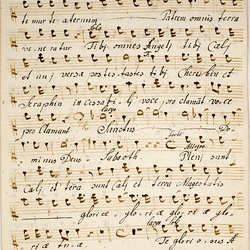 te mur te æternum Patrem omnis terra
solo
ve ne ratur Tibi omnes Angeli tibi Cæli
et uni versæ potes tates tibi Cheru bin et
Seraphin in cessabi li voce pro clamāt voce
largo
pro Clamant Sanctus
Tutti Do
Allegro
mi nus Deus Sabaoth Pleni sunt
Cæli et tera sunt Cæli et terra Magestatis
gloriæ glo ri æ glo ri æ glo
largo solo
ri æ tu æ Te glori o sus A